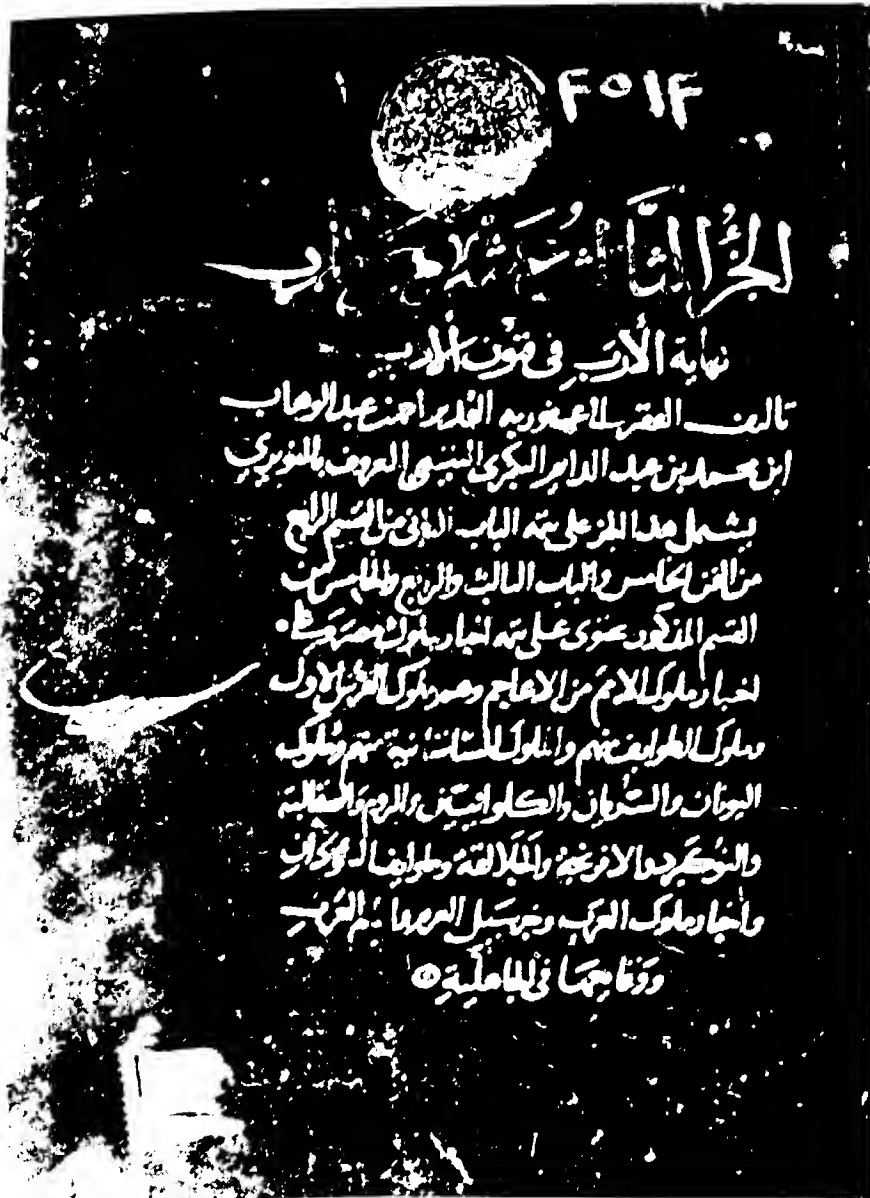 ٢٥١٢
الجزء الثا
نهاية الأرب في فنون الأدب
تاليف الفقير الى عفو ربه القدير احمد بن عبد الوهاب
ابن محمد بن عبد الدايم البكري التيمي المعروف بالنويري
يشتمل هذا الجز على تتمة الباب الثاني من القسم الرابع
من الفن الخامس والباب الثالث والرابع والخامس من
القسم المذكور يحتوى على تتمة اخبار ملوك مصر
اخبار ملوك الامم من الاعاجم وهم ملوك الفرس الاول
وملوك الطوايف منهم والملوك الساسانية منهم وملوك
اليونان والسريان والكلوانيين والروم والصقالبة
والنوكبرد والافرنجة والجلالقة وطوايف السودان
واخبار ملوك العرب وخبر سيل العرم وايام العرب
ووقايعها في الجاهلية